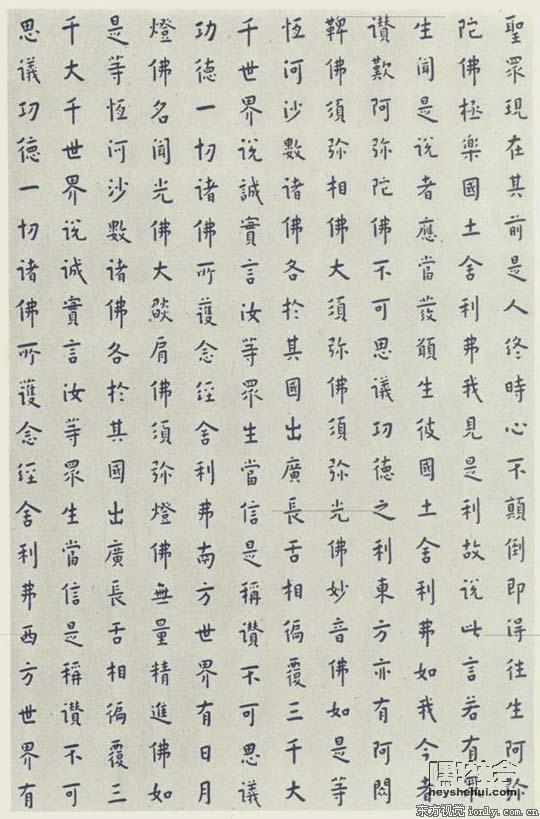 聖眾現在其前是人終時心不顛倒即得往生阿弥
陀佛極樂國土舍利弗我見是利故說此言若有
生聞是說者應當發願生彼國土舍利弗如我今者
讃歎阿弥陀佛不可思議功德之利東方亦有阿閦
鞞佛須弥相佛大須弥佛須弥光佛妙音佛如是等
恆河沙數諸佛各於其國出廣長舌相徧覆三千大
千世界說誠實言汝等眾生當信是稱讃不可思議
功德一切諸佛所護念經舍利弗南方世界有日月
燈佛名聞光佛大燄肩佛須弥燈佛無量精進佛如
是等恆河沙數諸佛各於其國出廣長舌相徧覆三
千大千世界說誠實言汝等眾生當信是稱讃不可
思議功德一切諸佛所護念經舍利弗西方世界有
heyshehui.com
东方视觉 ionly.com.cn